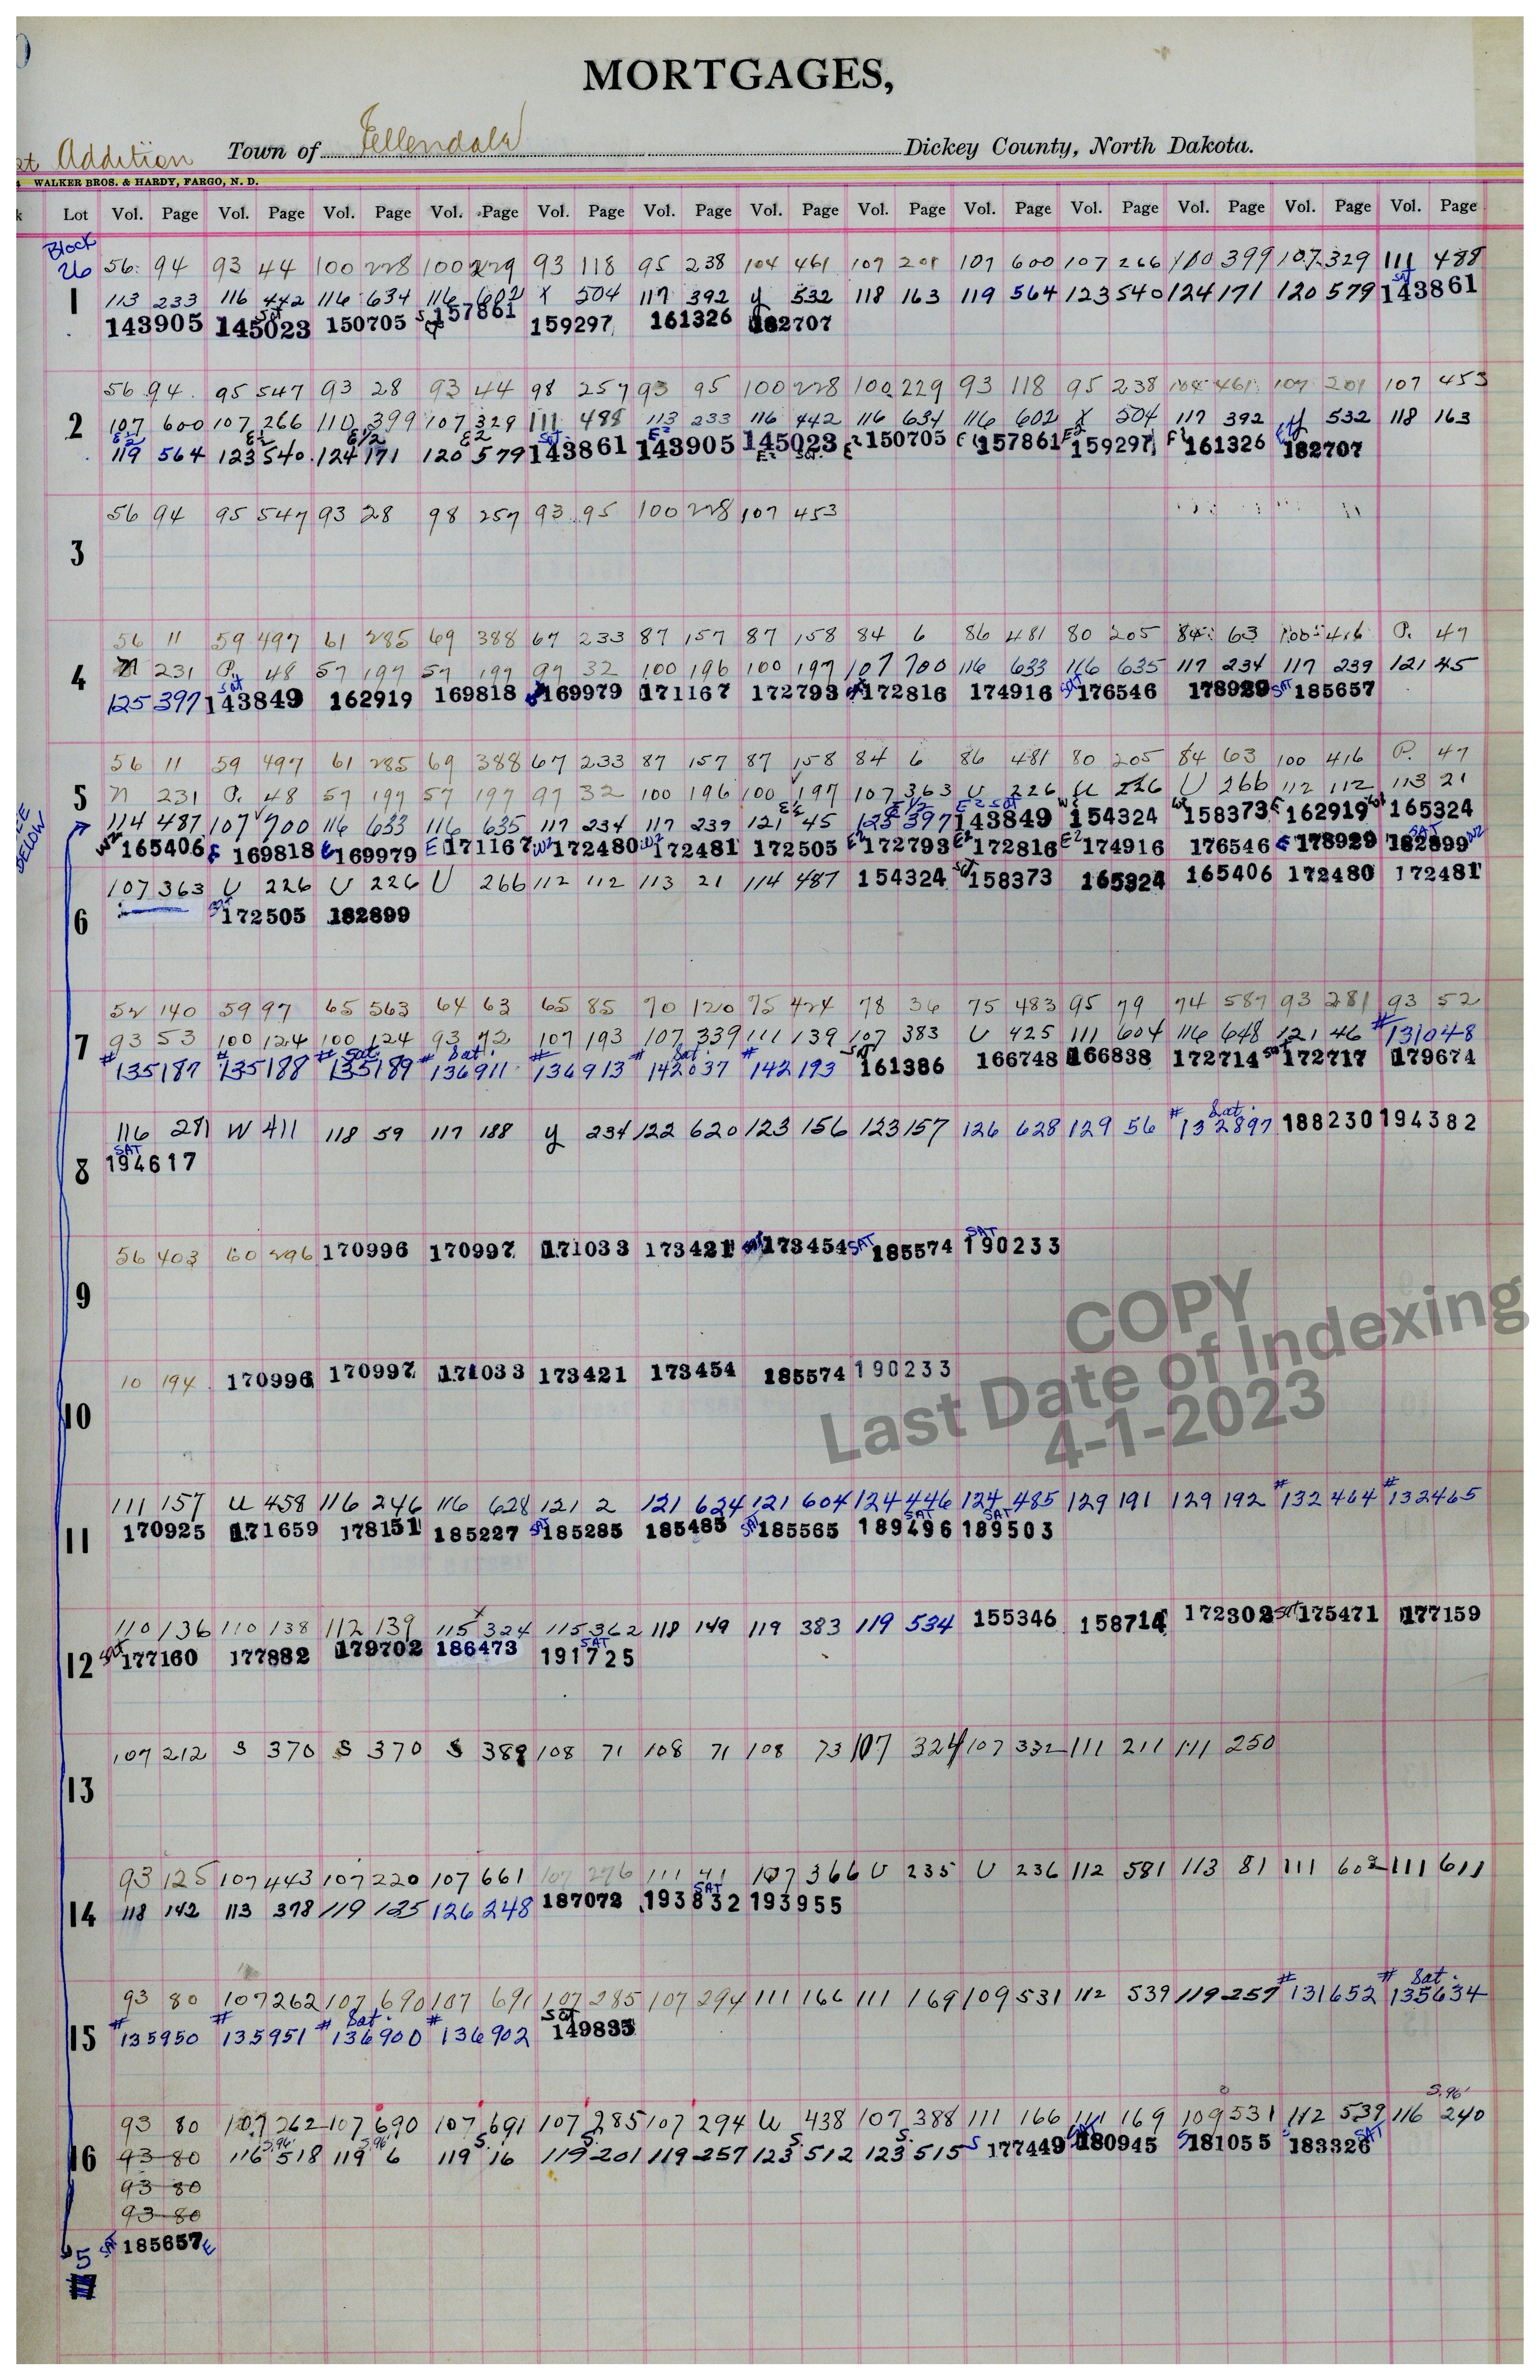 MORTGAGES,
Addition Town of Ellendale Dickey County, North Dakota.
WALKER BROS. & HARDY, FARGO, N. D.
Lot Vol. Page Vol. Page Vol. Page Vol. Page Vol. Page Vol. Page Vol. Page Vol. Page Vol. Page Vol. Page Vol. Page Vol. Page Vol. Page
Block
26 56 94 93 44 100 228 100 229 93 118 95 238 104 461 107 201 107 600 107 266 110 399 107 329 111 488
1 113 233 116 442 116 634 116 602 X 504 117 392 y 532 118 163 119 564 123 540 124 171 120 579 Sat 143861
143905 145023 Sat 150705 157861 159297 161326 182707
56 94 95 547 93 28 93 44 98 257 93 95 100 228 100 229 93 118 95 238 104 461 107 201 107 453
2 107 600 107 266 110 399 107 329 111 488 113 233 116 442 116 634 116 602 X 504 117 392 y 532 118 163
E2 119 564 E2 123 540 E1/2 124 171 E2 120 579 Sat. 143861 E2 143905 145023 E2 Sat. 150705 157861 E2 159297 161326 182707
56 94 95 547 93 28 98 257 93 95 100 228 107 453
3
56 11 59 497 61 285 69 388 67 233 87 157 87 158 84 6 86 481 80 205 84 63 100 416 P. 47
4 N 231 P. 48 57 197 57 199 97 32 100 196 100 197 107 700 116 633 116 635 117 234 117 239 121 45
125 397 Sat 143849 162919 169818 169979 171167 172793 172816 174916 SAT 176546 178929 SAT 185657
56 11 59 497 61 285 69 388 67 233 87 157 87 158 84 6 86 481 80 205 84 63 100 416 P. 47
5 N 231 P. 48 57 197 57 197 97 32 100 196 100 197 107 363 U 226 U 226 U 266 112 112 113 21
SEE BELOW
114 487 107 700 116 633 116 635 117 234 117 239 E2 121 45 E1/2 125 397 E2 Sat 143849 W2 154324 158373 162919 165324
W2 165406 E 169818 169979 E 171167 W2 172480 W2 172481 172505 E2 172793 E2 172816 E2 174916 176546 E 178929 SAT 182899 W2
107 363 U 226 U 226 U 266 112 112 113 21 114 487 154324 158373 165324 165406 172480 172481
6 172505 182899
52 140 59 97 65 563 64 63 65 85 70 120 75 424 78 36 75 483 95 79 74 587 93 281 93 52
7 93 53 100 124 100 124 93 72 107 193 107 339 111 139 107 383 U 425 111 604 116 648 121 46 #131048
#135187 #135188 # Sat. 135189 # Sat. 136911 #136913 # Sat. 142037 #142193 SAT 161386 166748 166838 172714 Sat 172717 179674
116 281 W 411 118 59 117 188 y 234 122 620 123 156 123 157 126 628 129 56 # Sat. 132897 188230 194382
8 SAT 194617
56 403 60 296 170996 170997 171033 173421 173454 SAT 185574 SAT 190233
9
10 194 170996 170997 171033 173421 173454 185574 190233
10
COPY
Last Date of Indexing
4-1-2023
111 157 U 458 116 246 116 628 121 2 121 624 121 604 124 446 124 485 129 191 129 192 #132464 #132465
11 170925 171659 178151 185227 SAT 185285 185485 SAT 185565 SAT 189496 SAT 189503
110 136 110 138 112 139 115 324 115 362 118 149 119 383 119 534 155346 158714 172302 Sat 175471 177159
12 SAT 177160 177882 179702 186473 SAT 191725
107 212 S 370 S 370 S 389 108 71 108 71 108 73 107 324 107 332 111 211 111 250
13
93 125 107 443 107 220 107 661 107 276 111 41 107 366 U 235 U 236 112 581 113 81 111 602 111 611
14 118 142 113 378 119 125 126 248 187072 SAT 193832 193955
93 80 107 262 107 690 107 691 107 285 107 294 111 166 111 169 109 531 112 539 119 257 #131652 # Sat. 135634
15 #135950 #135951 # Sat. 136900 #136902 Sat 149835
S. 96
93 80 107 262 107 690 107 691 107 285 107 294 U 438 107 388 111 166 111 169 109 531 112 539 116 240
16 93 80 116 518 S.96 119 6 S.96 119 S. 16 119 S. 201 119 257 123 S. 512 123 S. 515 S 177449 SAT 180945 S 181055 183326 SAT
93 80
93 80
SAT 185657 E
5